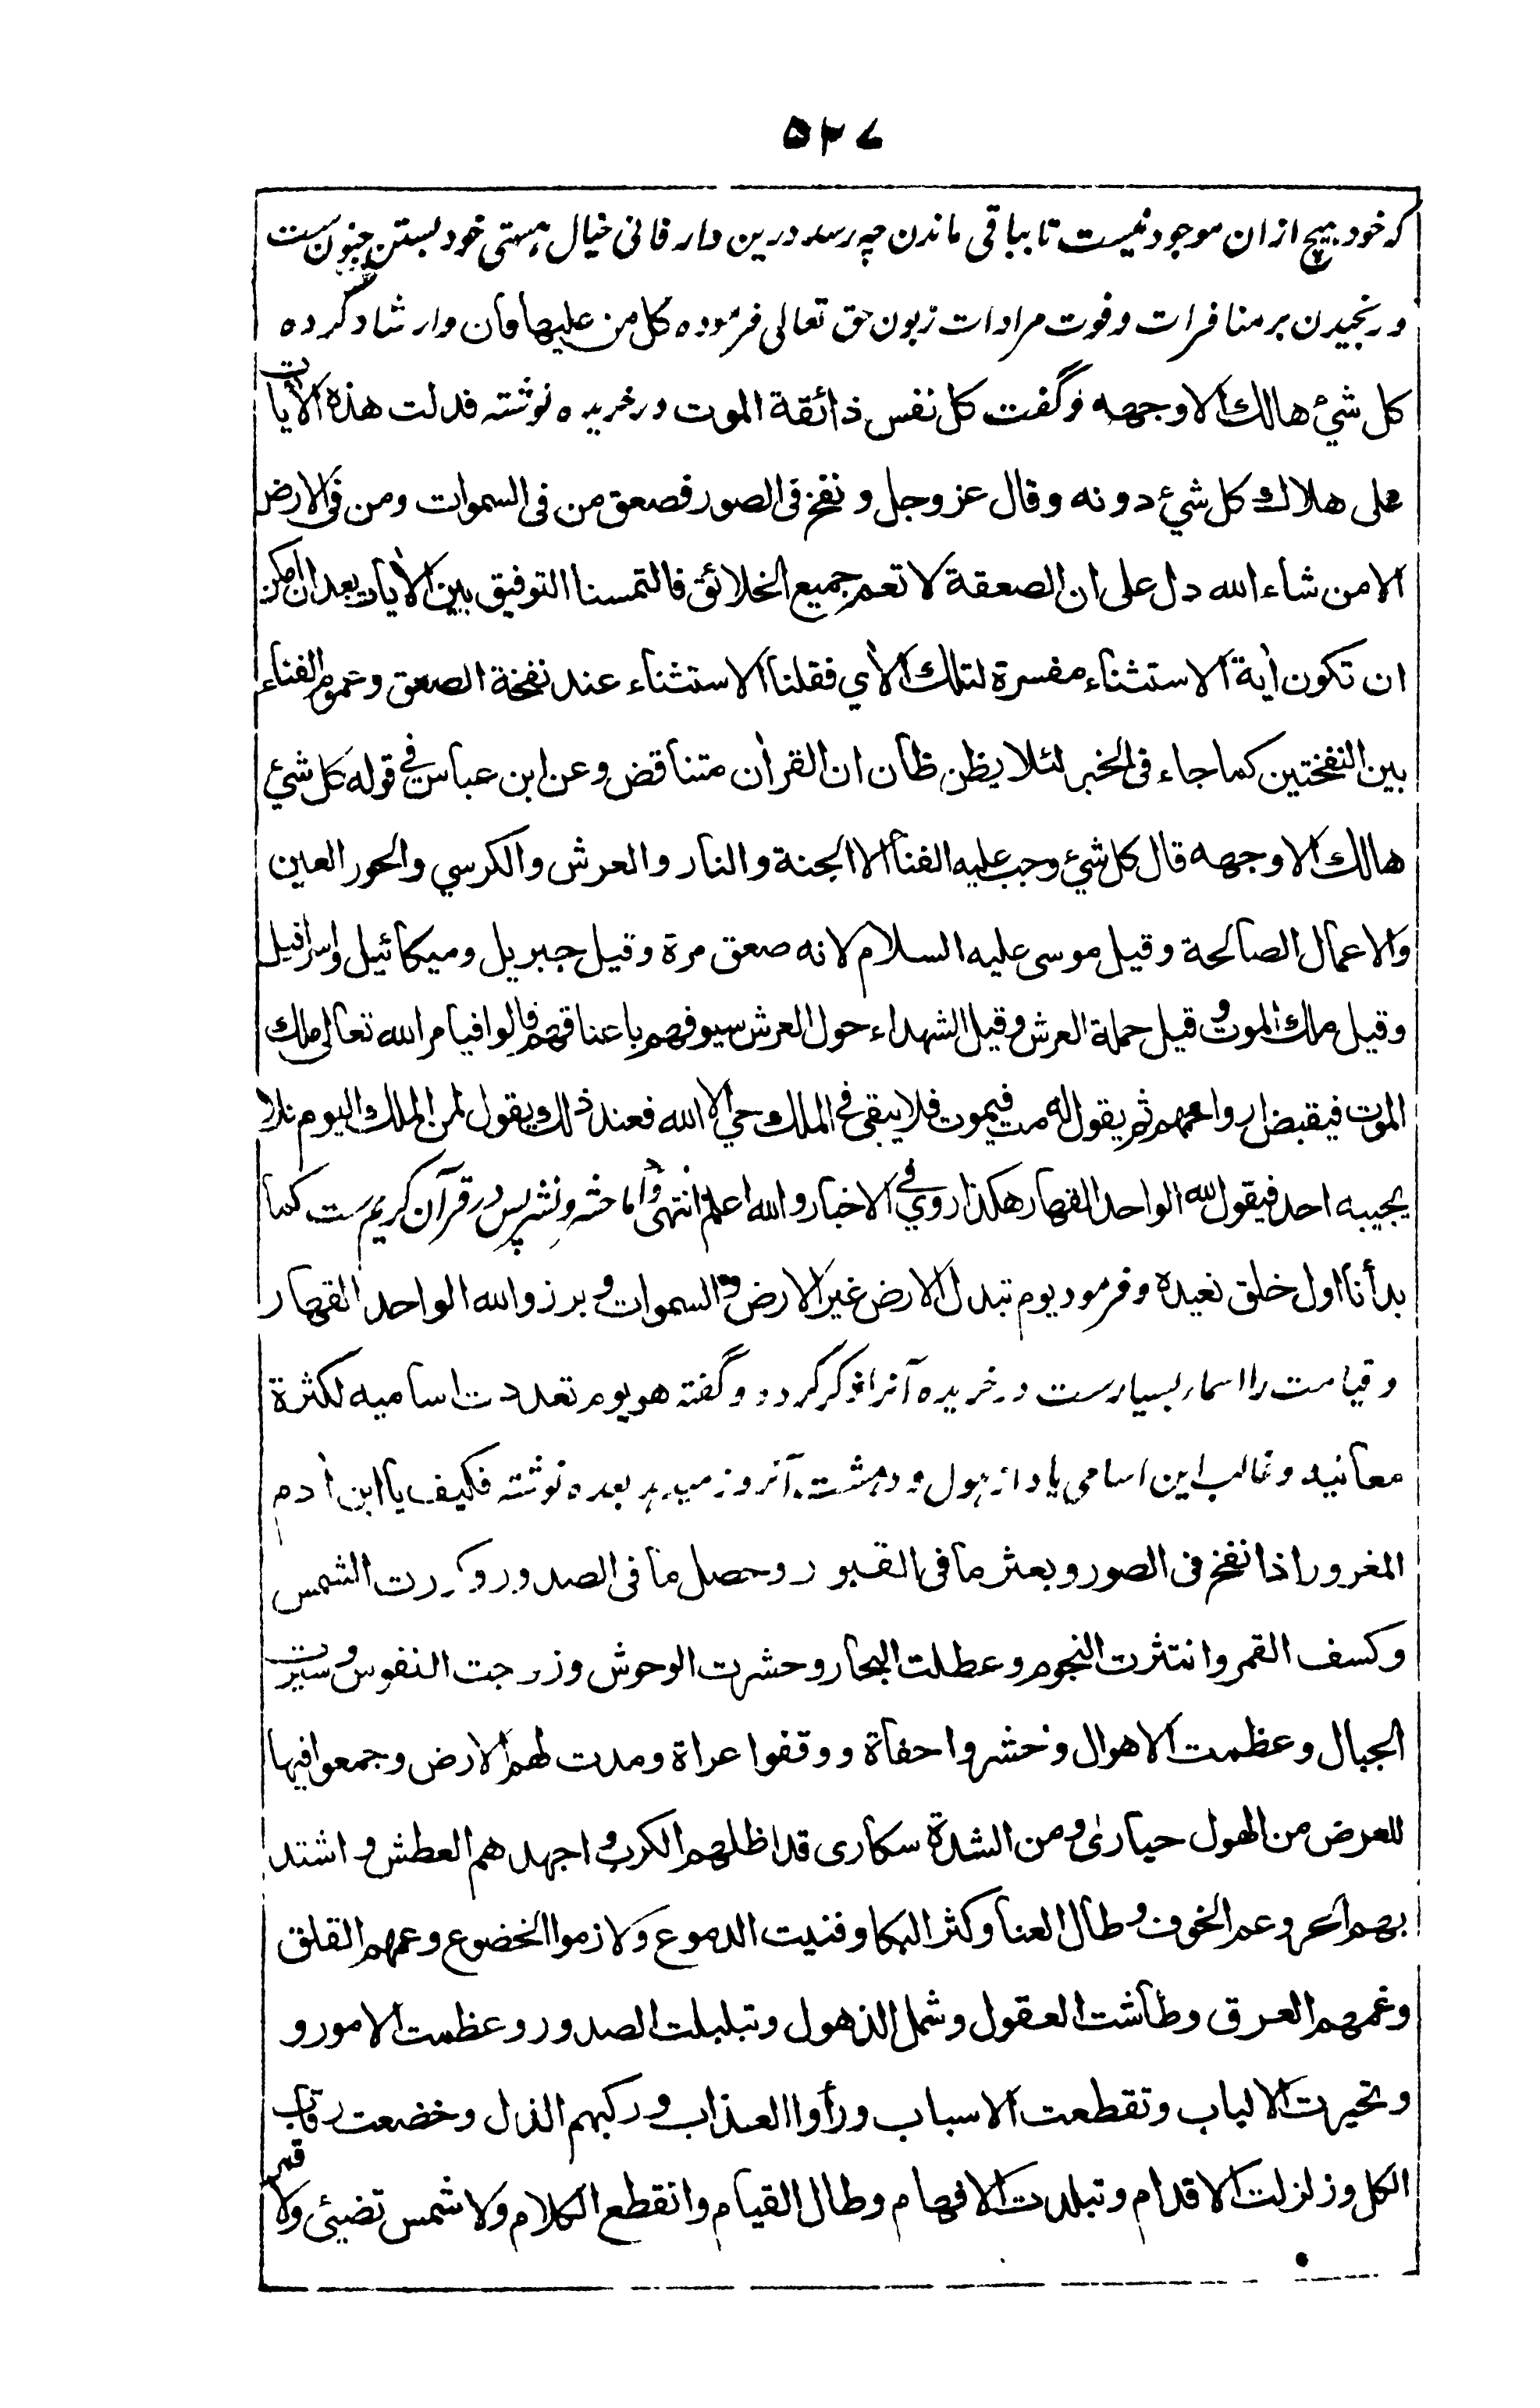 ۵۲۷
که خود هیچ ازان موجود نیست تا بباقی ماندن چه رسد درین دار فانی خیال هستی خود بستن جنون ست
و رنجیدن بر منافرات و فوت مرادات زبون حق تعالی فرموده کل من علیها فان وارشاد کرده
کل شیٔ هالك الا وجهه و گفت کل نفس ذائقة الموت در خریده نوشته فدلت هذه الاٰیات
علی هلاك کل شیٔ دونه وقال عز وجل و نفخ فی الصور فصعق من فی السموات ومن فی الارض
الا من شاء الله دل علی ان الصعقة لا تعم جمیع الخلائق فالتمسنا التوفیق بین الاٰیات بعد ان امکن
ان تکون اٰیة الاستثناء مفسرة لتلك الاٰی فقلنا الاستثناء عند نفخة الصعق وعموم الفناء
بین النفختین کما جاء فی الخبر لئلا یظن ظان ان القراٰن متناقض وعن ابن عباس فی قوله کل شیٔ
هالك الا وجهه قال کل شیٔ وجب علیه الفنا الا الجنة والنار والعرش والکرسی والحور العین
والاعمال الصالحة وقیل موسی علیه السلام لانه صعق مرة وقیل جبریل ومیکائیل واسرافیل
وقیل ملك الموت وقیل حملة العرش وقیل الشهداء حول العرش سیوفهم باعناقهم قالوا فیامر الله تعالی ملك
الموت فیقبض ارواحهم ثم یقول له مت فیموت فلا یبقی فی الملك حی الا الله فعند ذلك یقول لمن الملك الیوم فلا
یجیبه احد فیقول لله الواحد القهار هکذا روی فی الاخبار والله اعلم انتهی واما حشر ونشر پس در قرآن کریم ست کما
بدأنا اول خلق نعیده و فرمود یوم تبدل الارض غیر الارض والسموات و برزوا لله الواحد القهار
و قیامت را اسمار بسیارست در خریده آنرا ذکر کرده و گفته هو یوم تعددت اسامیه لکثرة
معانیه و غالب این اسامی یاد از هول و دهشت آنروز میدهد بعده نوشته فکیف یا ابن اٰدم
المغرور اذا نفخ فی الصور و بعثر ما فی القبور وحصل ما فی الصدور وکورت الشمس
وکسف القمر وانتثرت النجوم وعطلت البحار وحشرت الوحوش وزوجت النفوس وسیرت
الجبال وعظمت الاهوال وحشروا حفاة ووقفوا عراة ومدت لهم الارض وجمعوا فیها
للعرض من الهول حیاریٰ ومن الشدة سکاری قد اظلهم الکرب و اجهدهم العطش و اشتد
بهم الحر وعم الخوف وطال العنا وکثر البکا وفنیت الدموع ولازموا الخضوع وعمهم القلق
وغمهم العرق وطاشت العقول وشمل الذهول وتبلبلت الصدور وعظمت الامور و
وتحیرت الالباب وتقطعت الاسباب ورأوا العذاب ورکبهم الذل وخضعت رقاب
الکل وزلزلت الاقدام وتبلدت الافهام وطال القیام وانقطع الکلام ولا شمس تضیئ ولا قمر